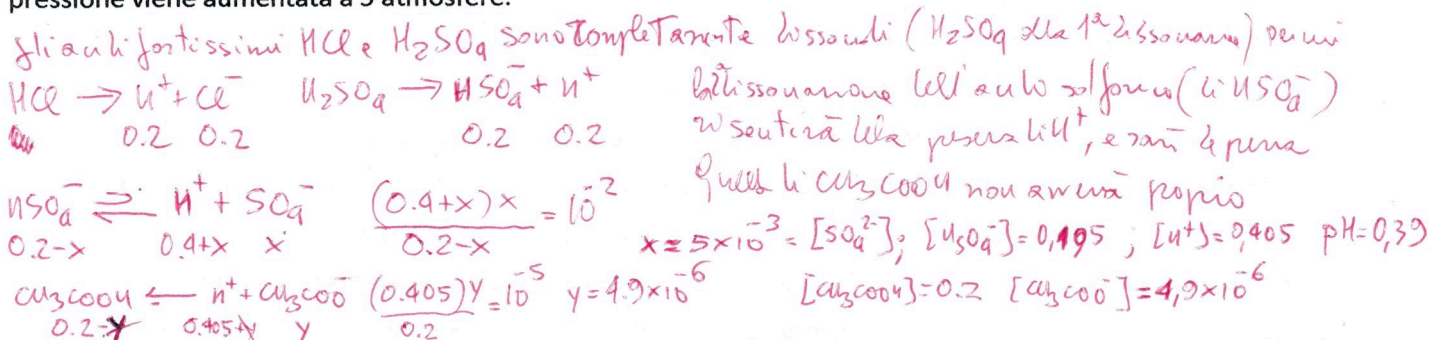 pressione viene aumentata a 5 atmosfere.
Gli acidi fortissimi HCl e H₂SO₄ sono completamente dissociati (H₂SO₄ alla 1ª dissociazione) per cui
HCl → H⁺ + Cl⁻ H₂SO₄ → HSO₄⁻ + H⁺ dell'acido solforico (di HSO₄⁻)
0.2 0.2 0.2 0.2 risentirà della presenza di H⁺, e sarà
HSO₄⁻ ⇌ H⁺ + SO₄⁻ (0.4+x)x / 0.2-x = 10⁻² di CH₃COOH non avverrà proprio
0.2-x 0.4+x x x = 5×10⁻³ = [SO₄²⁻]; [HSO₄⁻]=0,195 ; [H⁺]=0,405 pH=0,39
CH₃COOH ← H⁺ + CH₃COO⁻ (0.405)y / 0.2 = 10⁻⁵ y = 4.9×10⁻⁶ [CH₃COOH]=0.2 [CH₃COO⁻]=4,9×10⁻⁶
0.2-y 0.405+y y